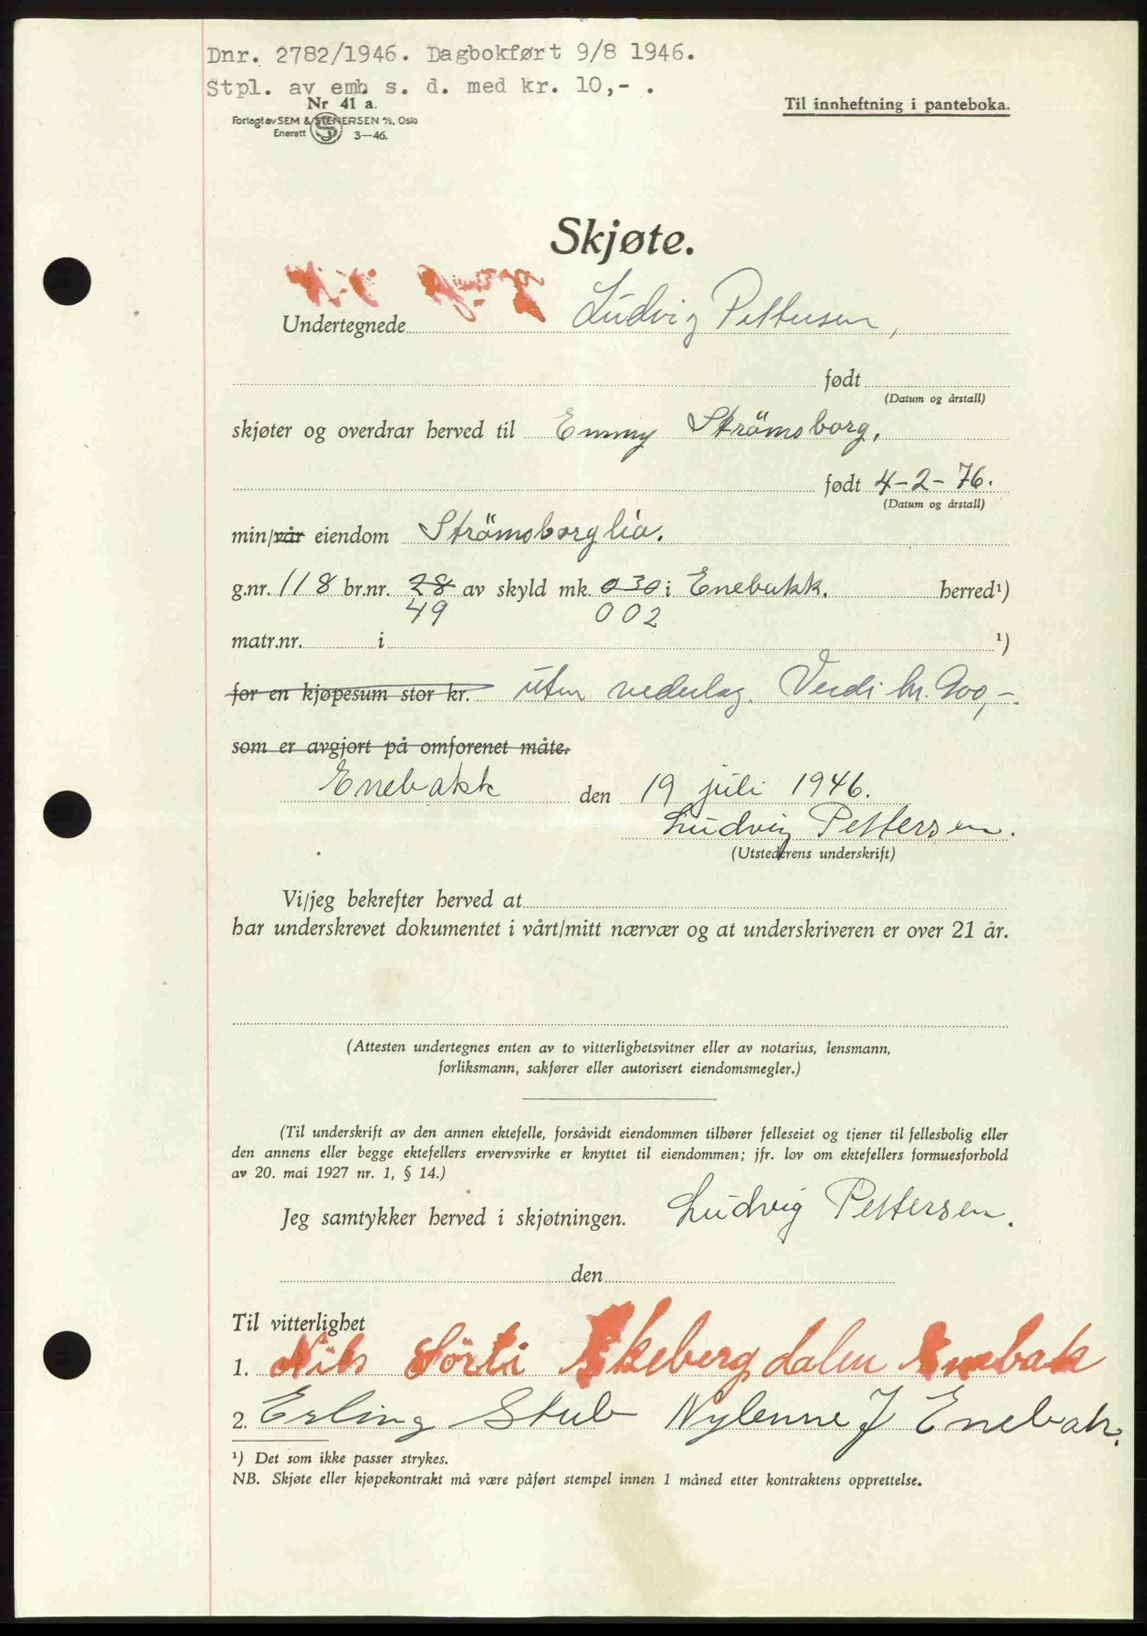 Dnr. 2782/1946. Dagbokført 9/8 1946.
Stpl. av emb s. d. med kr. 10,- .
Nr 41 a.
Forlagt av SEM & STENERSEN A/S, Oslo
Enerett 3—46.
Til innheftning i panteboka.
Skjøte.
Undertegnede Ludvig Pettersen,
født
(Datum og årstall)
skjøter og overdrar herved til Emmy Strömsborg,
født 4-2-76.
(Datum og årstall)
min/vår eiendom Strömsborglia.
g.nr. 118 br.nr. 28 av skyld mk. 030 i Enebakk. herred¹)
49 002
matr.nr. i ¹)
for en kjøpesum stor kr. uten vederlag. Verdi kr. 900,-.
som er avgjort på omforenet måte.
Enebakk den 19 juli 1946.
Ludvig Pettersen.
(Utstederens underskrift)
Vi/jeg bekrefter herved at
har underskrevet dokumentet i vårt/mitt nærvær og at underskriveren er over 21 år.
(Attesten undertegnes enten av to vitterlighetsvitner eller av notarius, lensmann,
forliksmann, sakfører eller autorisert eiendomsmegler.)
(Til underskrift av den annen ektefelle, forsåvidt eiendommen tilhører felleseiet og tjener til fellesbolig eller
den annens eller begge ektefellers ervervsvirke er knyttet til eiendommen; jfr. lov om ektefellers formuesforhold
av 20. mai 1927 nr. 1, § 14.)
Jeg samtykker herved i skjøtningen. Ludvig Pettersen.
den
Til vitterlighet
1. Nils Sörli Skebergdalen Enebak
2. Erling Stub Nylenne J Enebak.
¹) Det som ikke passer strykes.
NB. Skjøte eller kjøpekontrakt må være påført stempel innen 1 måned etter kontraktens opprettelse.